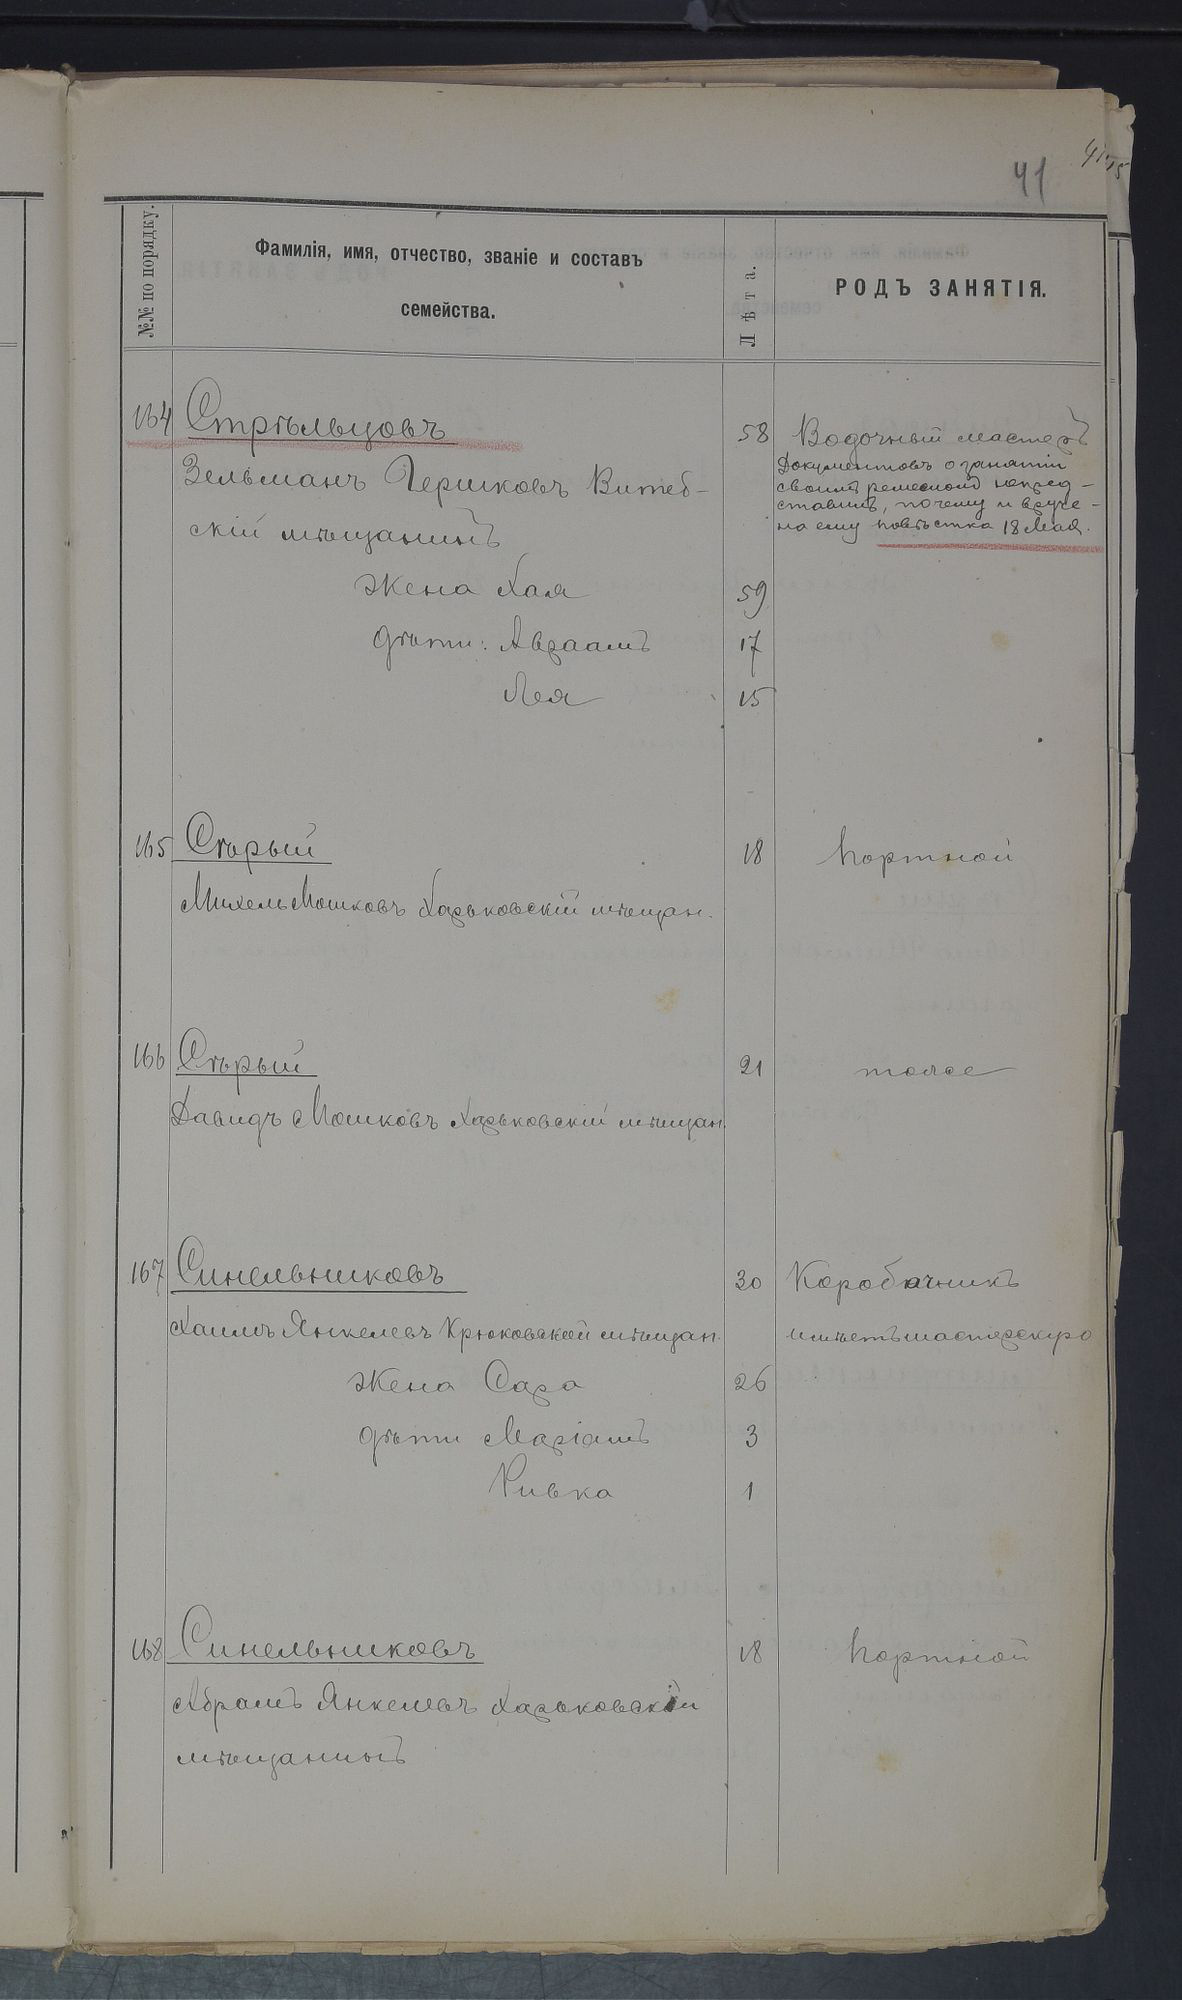 41
№№ по порядку.
Фамилія, имя, отчество, званіе и составъ
семейства.
Лѣта.
РОДЪ ЗАНЯТІЯ.
164 Стрѣльцовъ 58 Водочный мастеръ
Документовъ о занятіи
своимъ ремесломъ непред-
ставилъ, почему и вруче-
на ему повѣстка 18 Мая.
Зельманъ Гершковъ Витеб-
скій мѣщанинъ
Жена Хая 59
дѣти: Авраамъ 17
Лея 15
165 Старый 18 Портной
Михель Мошковъ Харьковскій мѣщан.
166 Старый 21 тоже
Давидъ Мошковъ Харьковскій мѣщан.
167 Синельниковъ 30 Коробочникъ
Хаимъ Янкелевъ Крюковской мѣщан. имѣетъ мастерскую
Жена Сара 26
дѣти Маріамъ 3
Ривка 1
168 Синельниковъ 18 Портной
Абрамъ Янкелевъ Харьковскій
мѣщанинъ